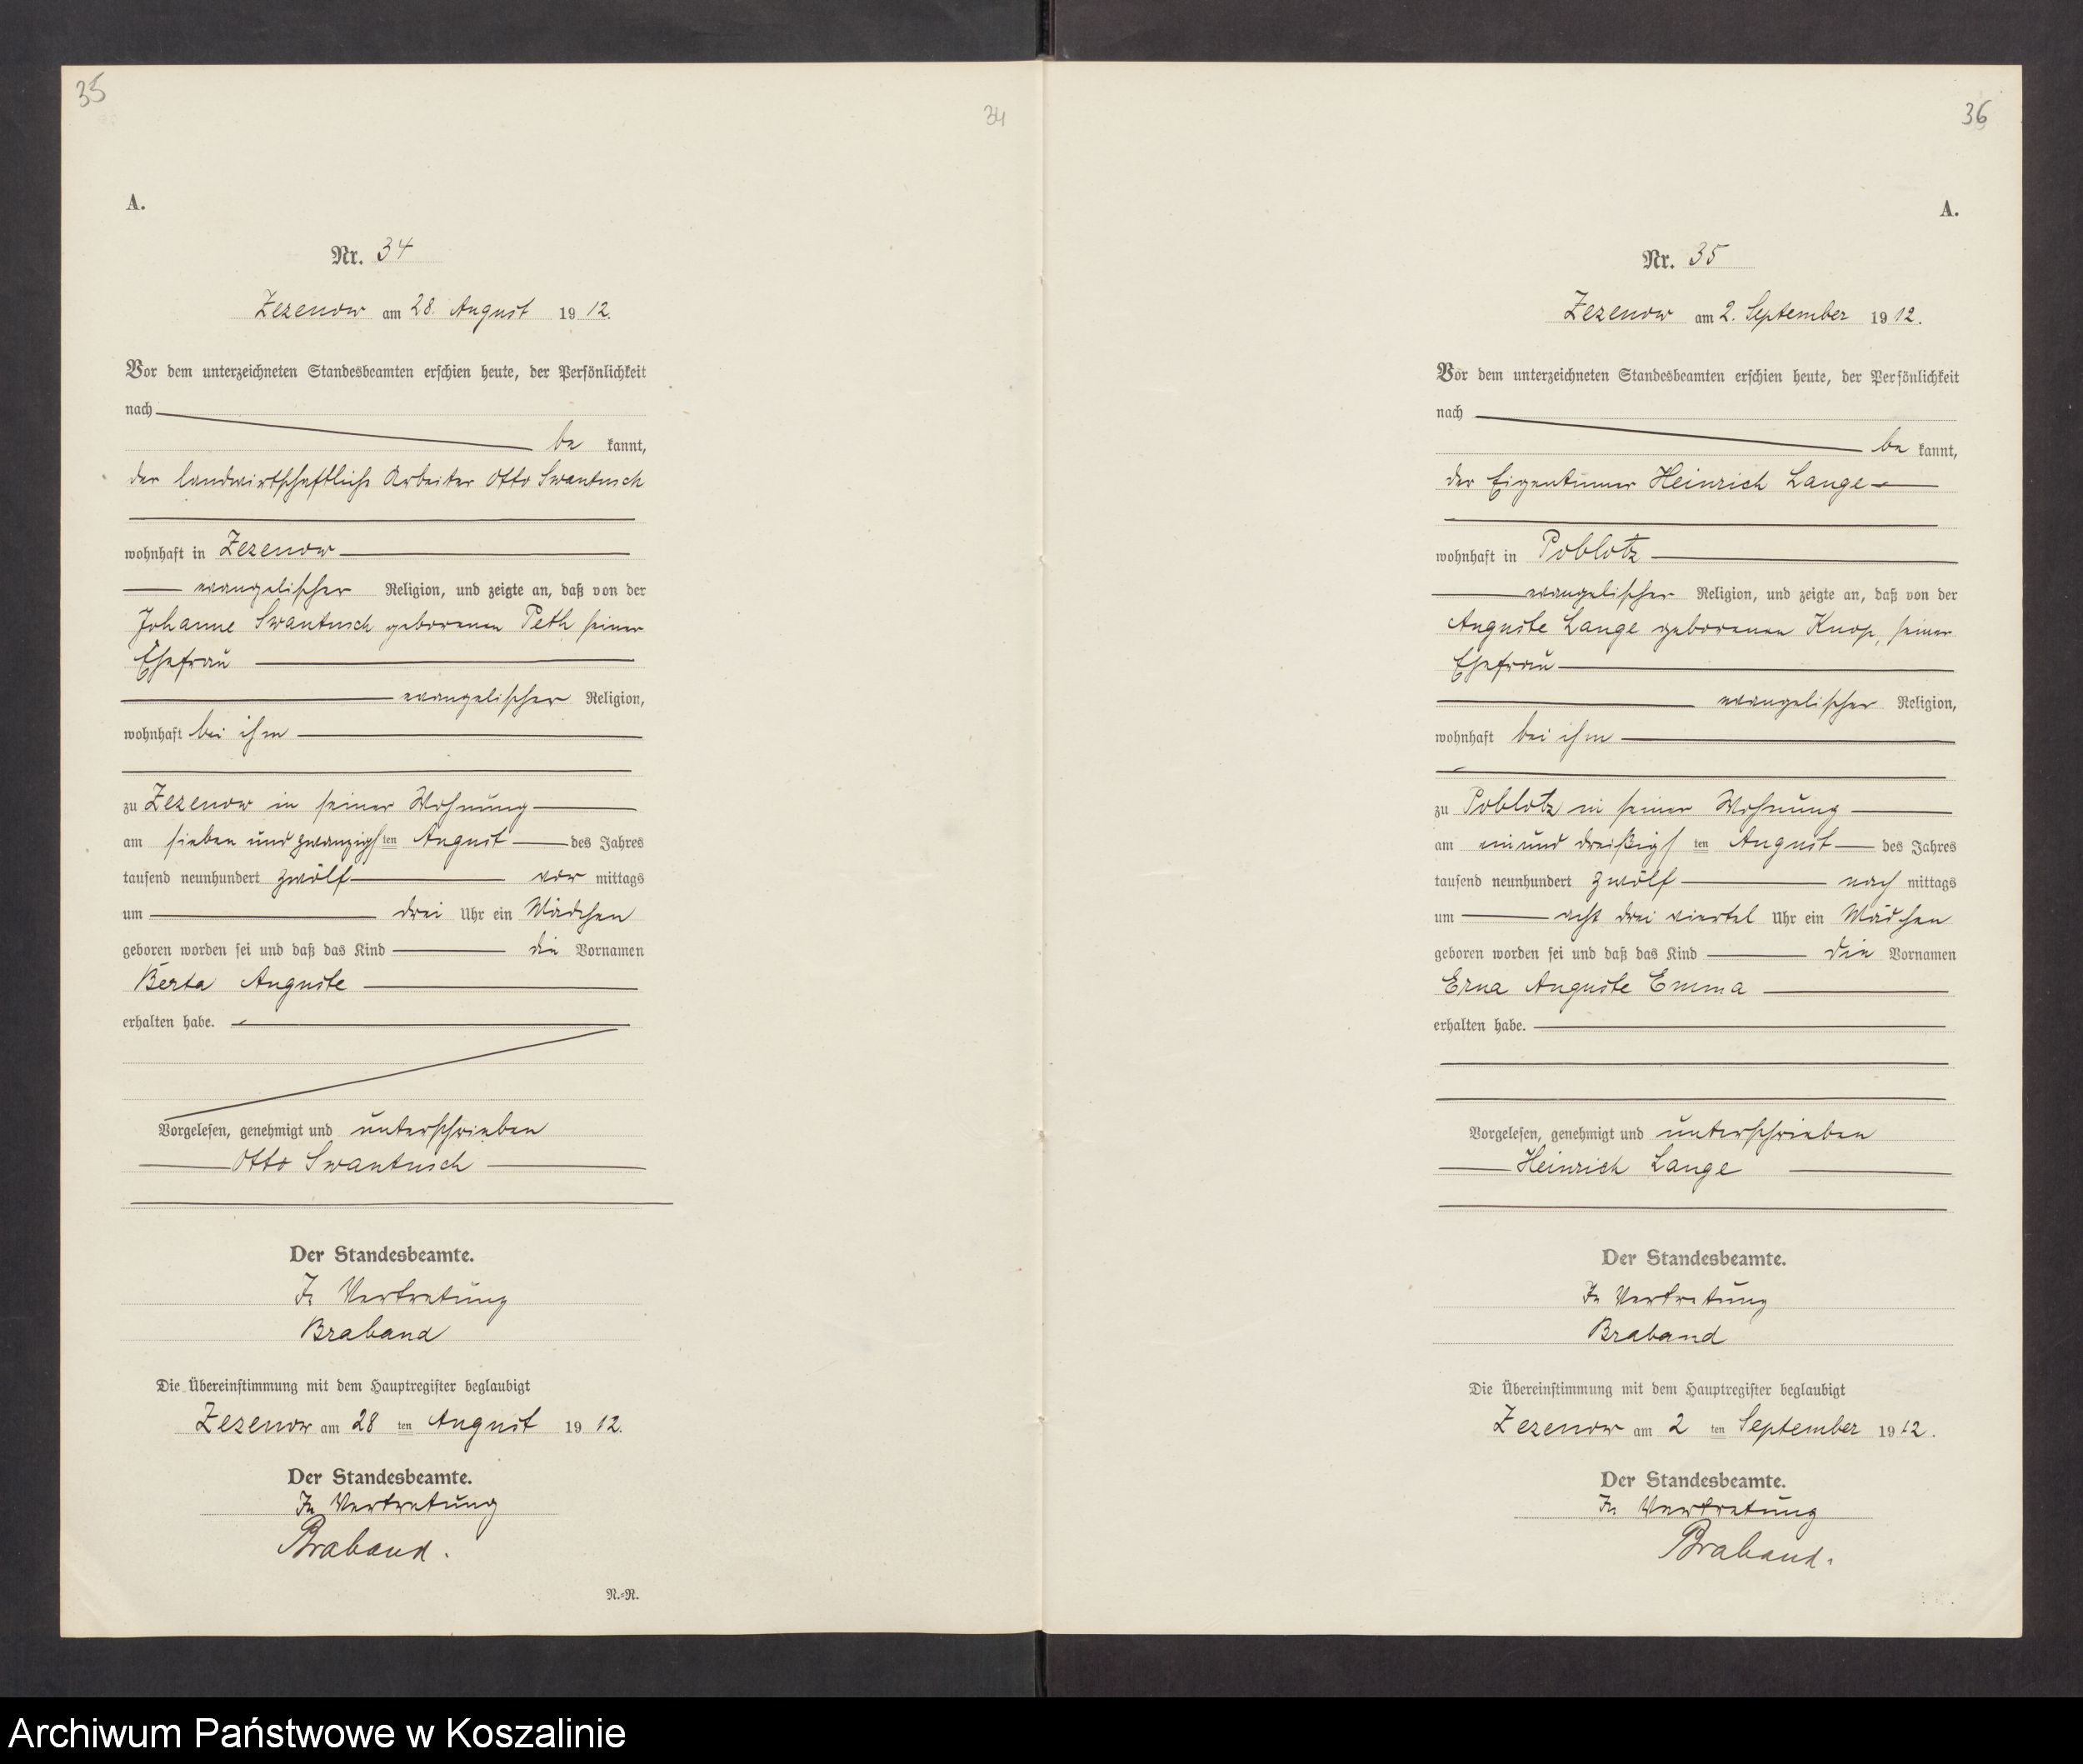 35
A.
Nr. 34
Zezenow am 28. August 1912.
Vor dem unterzeichneten Standesbeamten erschien heute, der Persönlichkeit
nach
be kannt,
der landwirtschaftliche Arbeiter Otto Swantusch
wohnhaft in Zezenow
evangelischer Religion, und zeigte an, daß von der
Johanne Swantusch geborenen Peth seiner
Ehefrau
evangelischer Religion,
wohnhaft bei ihm
zu Zezenow in seiner Wohnung
am sieben und zwanzigsten August des Jahres
tausend neunhundert zwölf vor mittags
um drei Uhr ein Mädchen
geboren worden sei und daß das Kind die Vornamen
Berta Auguste
erhalten habe.
Vorgelesen, genehmigt und unterschrieben
Otto Swantusch
Der Standesbeamte.
In Vertretung
Braband
Die Übereinstimmung mit dem Hauptregister beglaubigt
Zezenow am 28 ten August 1912.
Der Standesbeamte.
In Vertretung
Braband.
N.=R.
34
36
A.
Nr. 35
Zezenow am 2. September 1912.
Vor dem unterzeichneten Standesbeamten erschien heute, der Persönlichkeit
nach
be kannt,
der Eigentümer Heinrich Lange
wohnhaft in Poblotz
evangelischer Religion, und zeigte an, daß von der
Auguste Lange geborenen Knop, seiner
Ehefrau
evangelischer Religion,
wohnhaft bei ihm
zu Poblotz in seiner Wohnung
am einund dreißigsten August des Jahres
tausend neunhundert zwölf nach mittags
um acht drei viertel Uhr ein Mädchen
geboren worden sei und daß das Kind die Vornamen
Erna Auguste Emma
erhalten habe.
Vorgelesen, genehmigt und unterschrieben
Heinrich Lange
Der Standesbeamte.
In Vertretung
Braband
Die Übereinstimmung mit dem Hauptregister beglaubigt
Zezenow am 2 ten September 1912.
Der Standesbeamte.
In Vertretung
Braband.
Archiwum Państwowe w Koszalinie